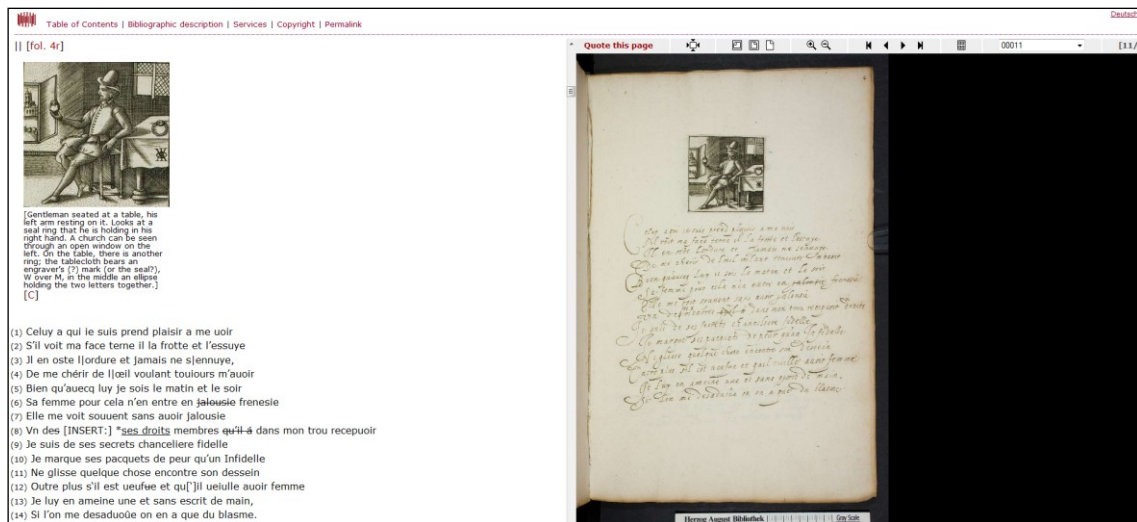 Table of Contents | Bibliographic description | Services | Copyright | Permalink
Deutsch
|| [fol. 4r]
[Gentleman seated at a table, his
left arm resting on it. Looks at a
seal ring that he is holding in his
right hand. A church can be seen
through an open window on the
left. On the table, there is another
ring; the tablecloth bears an
engraver's (?) mark (or the seal?),
W over M, in the middle an ellipse
holding the two letters together.]
[C]
(1) Celuy a qui ie suis prend plaisir a me uoir
(2) S'il voit ma face terne il la frotte et l'essuye
(3) Jl en oste l|ordure et jamais ne s|ennuye,
(4) De me chérir de l|œil voulant touiours m'auoir
(5) Bien qu'auecq luy je sois le matin et le soir
(6) Sa femme pour cela n'en entre en jalousie frenesie
(7) Elle me voit souuent sans auoir jalousie
(8) Vn des [INSERT:] *ses droits membres qu'il á dans mon trou recepuoir
(9) Je suis de ses secrets chanceliere fidelle
(10) Je marque ses pacquets de peur qu'un Infidelle
(11) Ne glisse quelque chose encontre son dessein
(12) Outre plus s'il est ueufue et qu[']il ueiulle auoir femme
(13) Je luy en ameine une et sans escrit de main,
(14) Si l'on me desaduoûe on en a que du blasme.
Quote this page
00011
[11/
Herzog August Bibliothek
Gray Scale